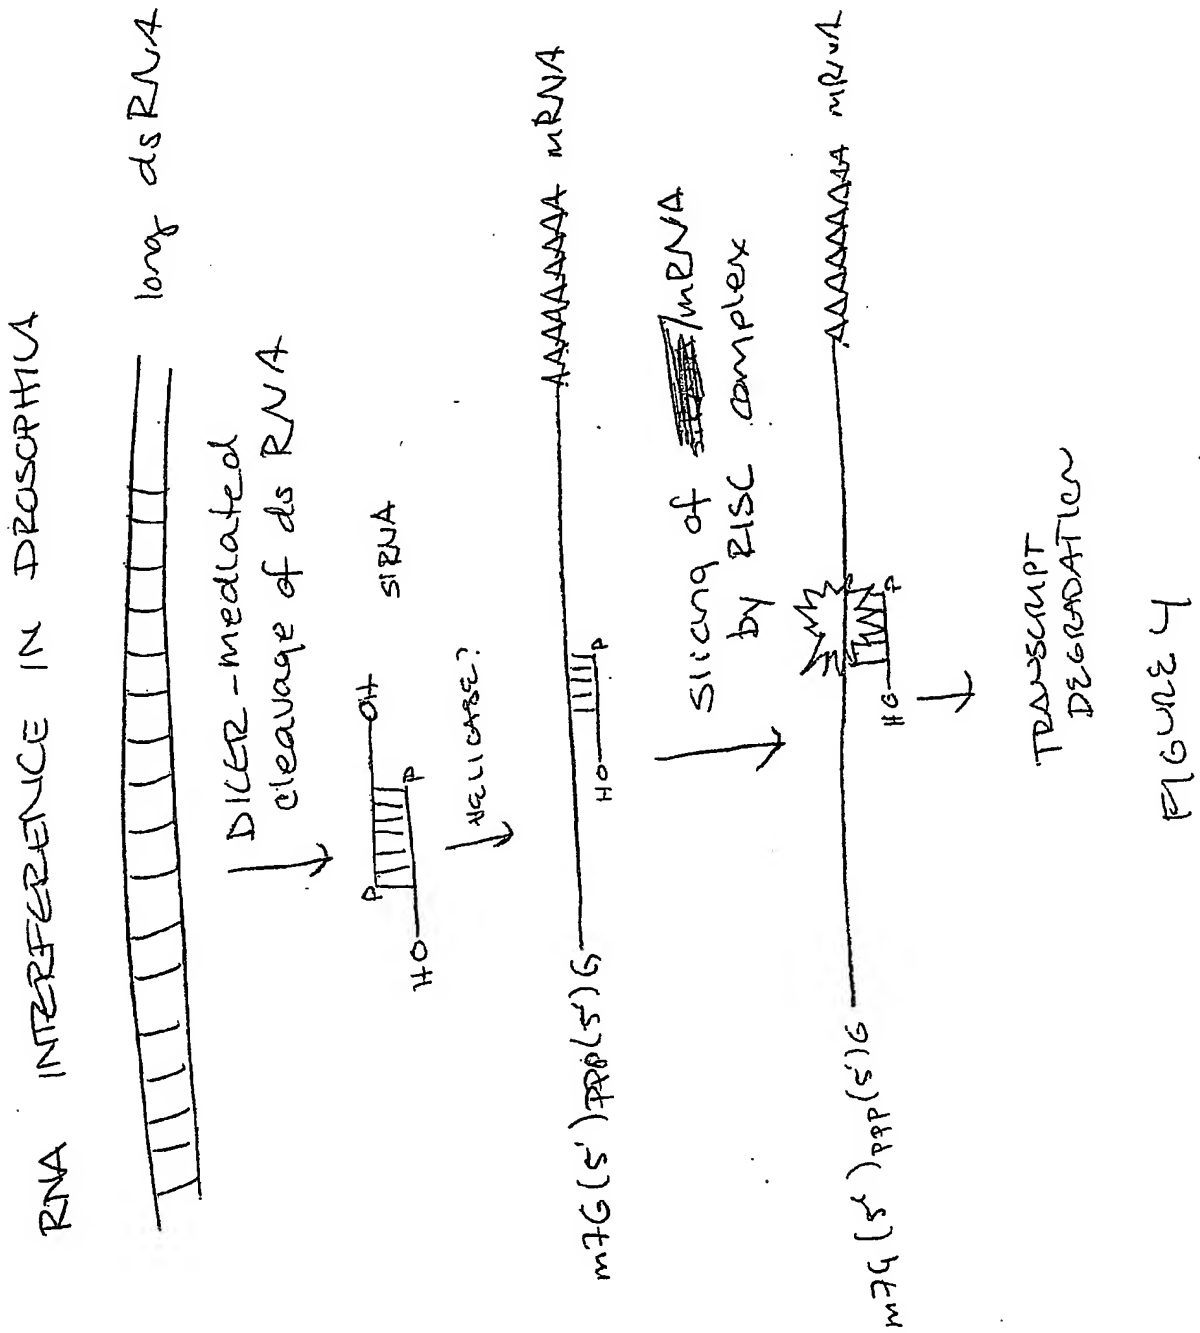 RNA INTERFERENCE IN DROSOPHILA
long dsRNA
DICER-mediated
cleavage of ds RNA
P
OH
siRNA
HO
P
HELICASE?
m7G(5')ppp(5')G
AAAAAAAAA mRNA
HO
P
Slicing of /mRNA
by RISC complex
m7G(5')ppp(5')G
AAAAAAAAA mRNA
HO
P
TRANSCRIPT
DEGRADATION
FIGURE 4